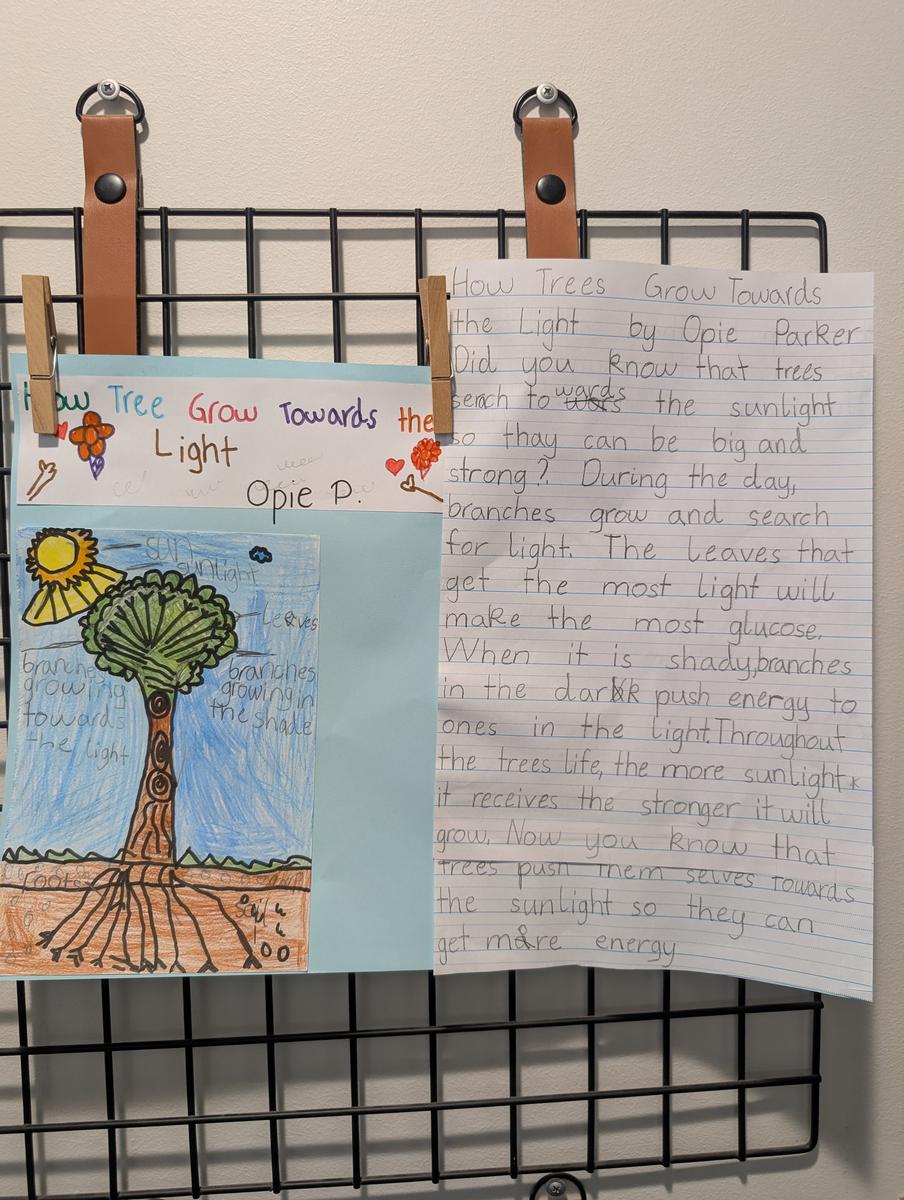 How Tree Grow Towards the
Light
Opie P.
sun
sunlight
Leaves
branches
growing
towards
the light
branches
growing in
the shade
roots
Soil
How Trees Grow Towards
the Light by Opie Parker
Did you know that trees
serach to wards the sunlight
so thay can be big and
strong? During the day,
branches grow and search
for light. The leaves that
get the most light will
make the most glucose.
When it is shady,branches
in the dark push energy to
ones in the light.Throughout
the trees life, the more sunlight
it receives the stronger it will
grow. Now you know that
trees push them selves towards
the sunlight so they can
get more energy